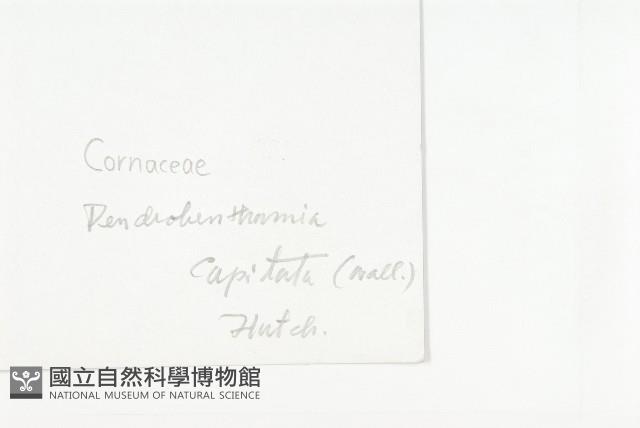 Cornaceae
Dendrobenthamia
Capitata (Wall.)
Hutch.
國立自然科學博物館
NATIONAL MUSEUM OF NATURAL SCIENCE